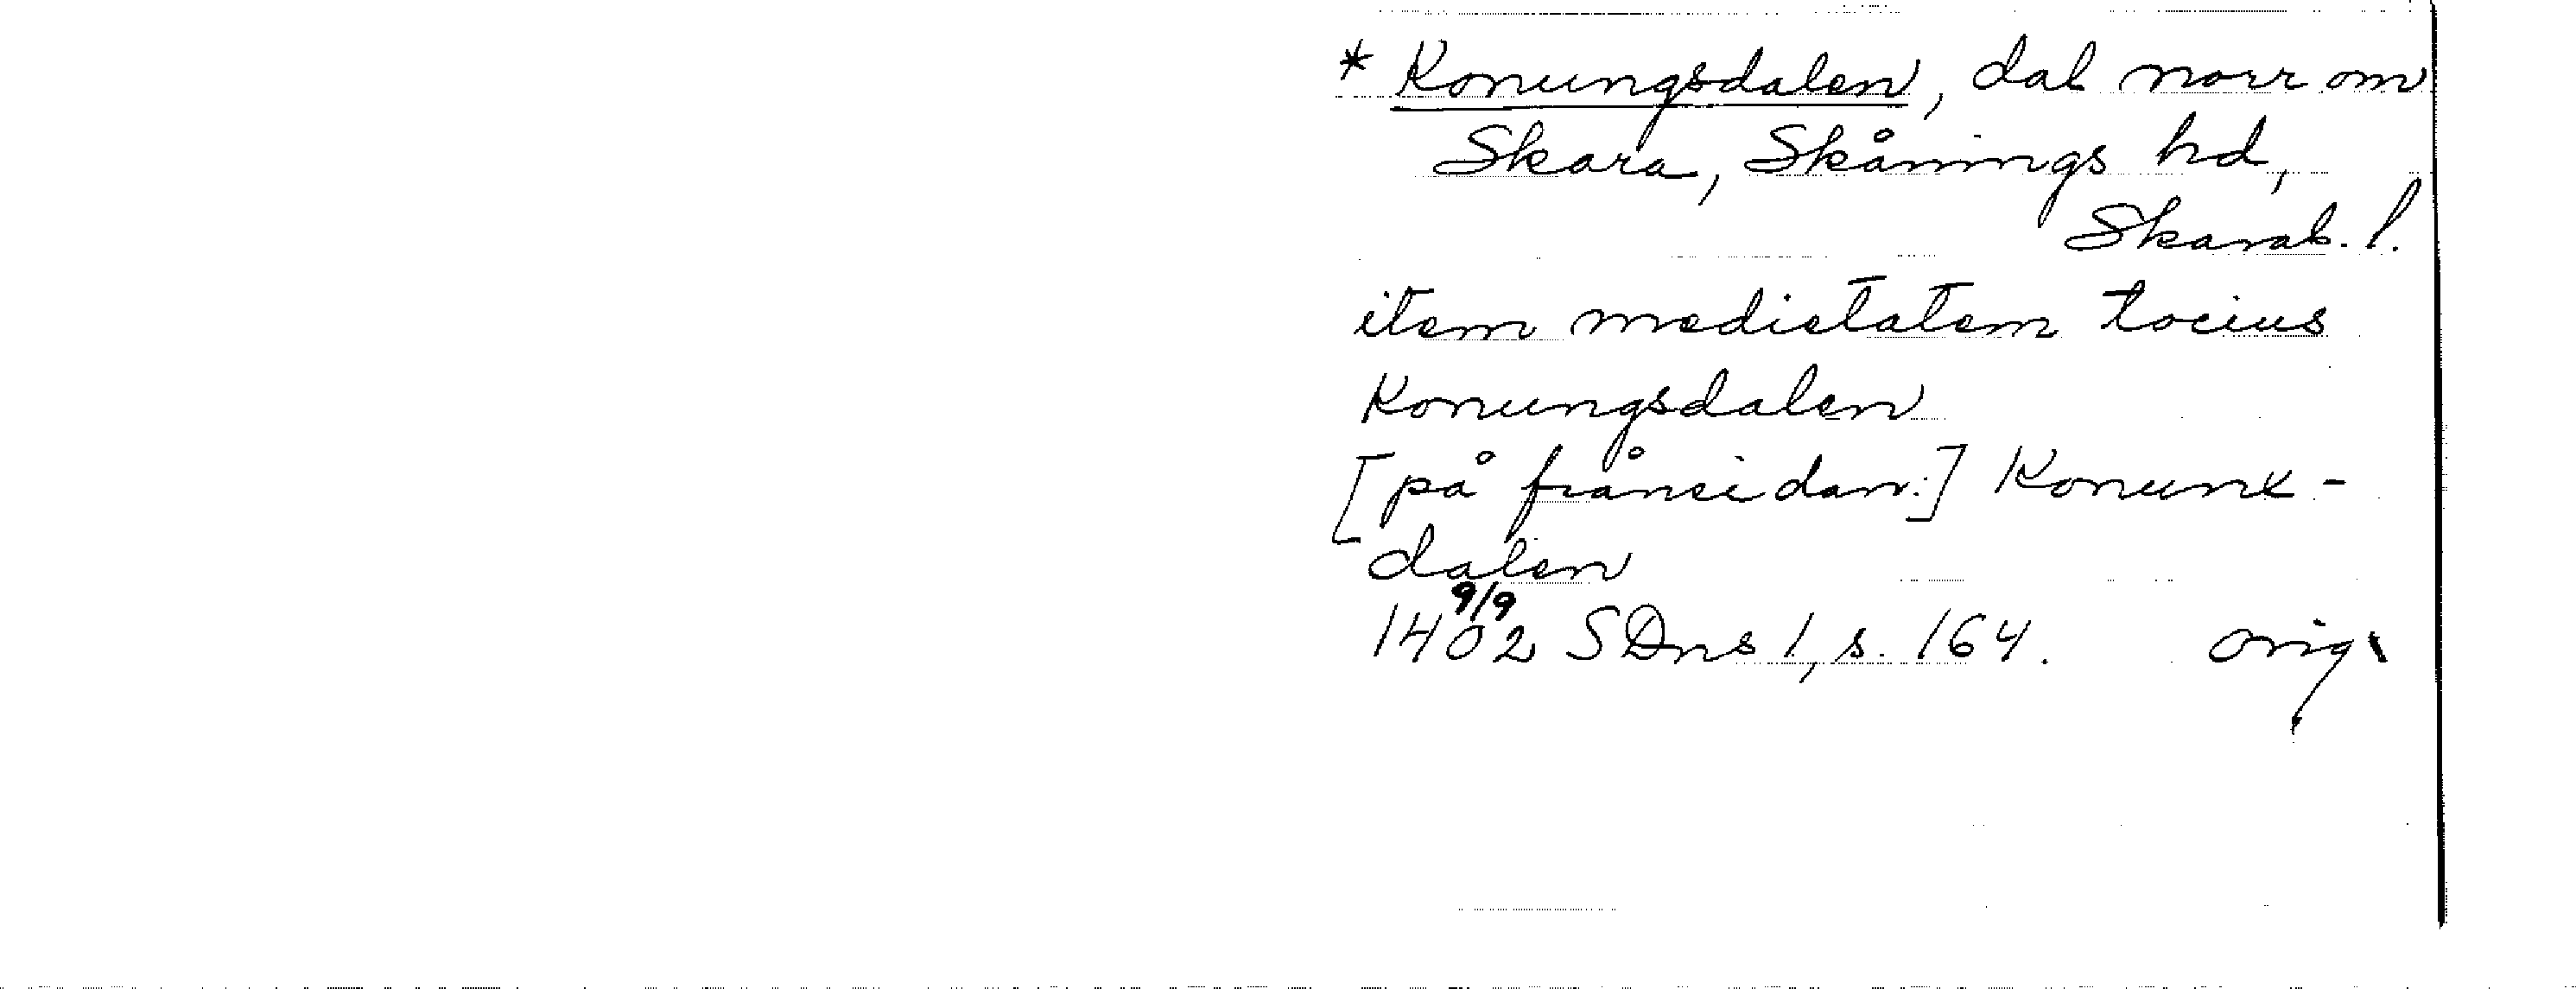 * Konungsdalen, dal norr om
Skara, Skånings hd,
Skarab. l.
item medietatem tocius
Konungsdalen
[på frånsidan:] Konunx-
dalen
9/9
1402 SDns 1, s. 164. orig.